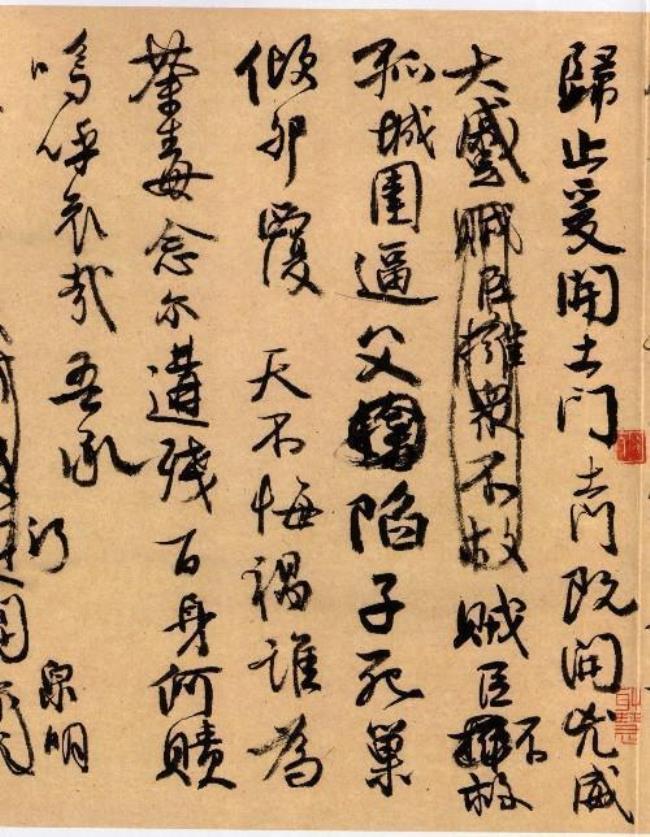 歸止爰開土門土門既開凶威
大蹙賊臣擁衆不救賊臣不救
孤城圍逼父陷子死巢
傾卵覆天不悔禍誰為
荼毒念尔遘残百身何贖
嗚呼哀哉吾承
泉明